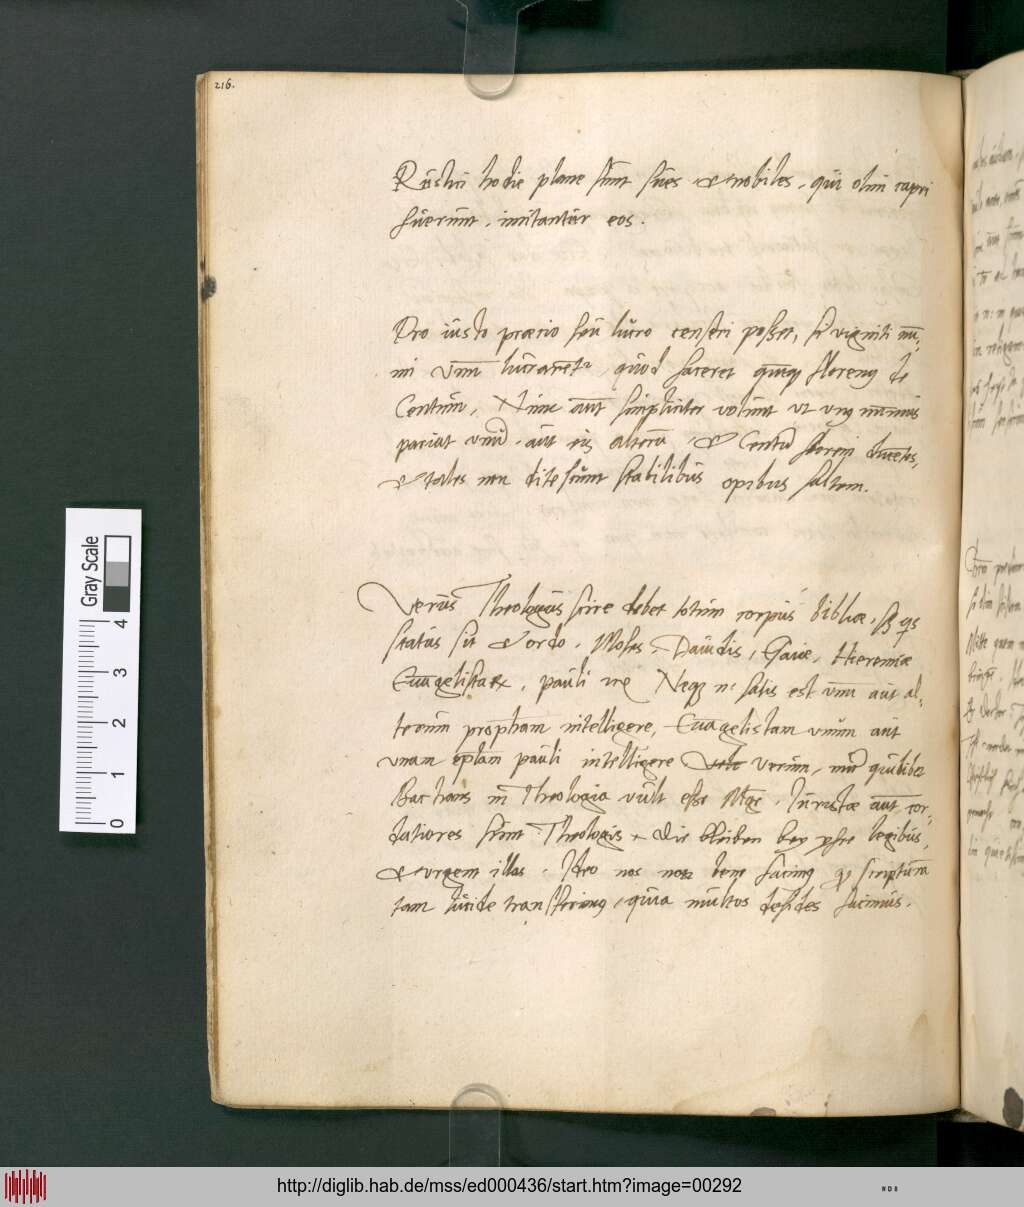 216.
Rustici hodie plane sunt sues et nobiles, qui olim capri
fuerunt, imitantur eos.
Pro iusto precio seu lucro censeri posset, si viginti num̄i
mi unum lucrarent, quod faceret quinque florenos de
Centum, Nunc aut simpliciter volunt ut unus nummus
pariat unum, aut eis alterum, et Centum floreni ducentos,
et tales non ditescunt stabilibus opibus saltem.
Verus Theologus scire debet totum corpus bibliae, quis
status sit et ordo, Mosis, Dauidis, Esaiae, Hieremiae
Euangelistarum, pauli etc Neque satis est unum aut al-
terum prophetam intelligere, Euangelistam unum aut
unam eplam pauli intelligere verum, quilibet
Bachans in Theologia vult esse Mgr. Iuristae aut cor-
datiores sunt Theologis, Die bleiben bey yhre legibus,
et urgent illas. Ideo nos non bene facimus, quod scripturam
tam lucide transferimus, quia multos desides facimus.
Gray Scale
0 1 2 3 4
http://diglib.hab.de/mss/ed000436/start.htm?image=00292